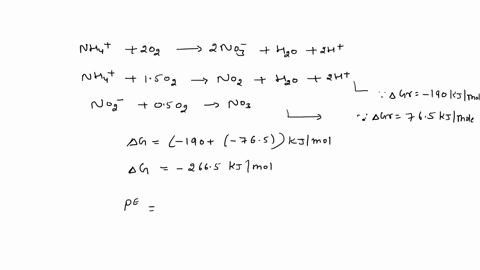 NH₄⁺ + 2O₂ → 2NO₃⁻ + H₂O + 2H⁺
NH₄⁺ + 1.5O₂ → NO₂ + H₂O + 2H⁺
∵ ΔGr = -190 kJ/mol
NO₂⁻ + 0.5O₂ → NO₃
∵ ΔGr = 76.5 kJ/mole
ΔG = (-190 + (-76.5)) kJ/mol
ΔG = -266.5 kJ/mol
PE =